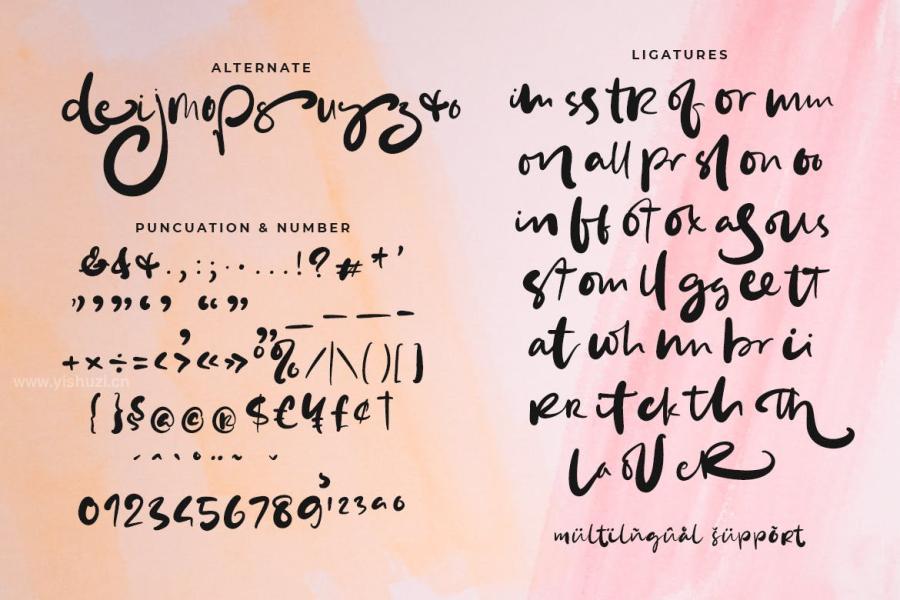 ALTERNATE
deijmopsuyz&o
PUNCUATION & NUMBER
&&&.,:;·....!?#*'
"""''""
+×÷=<>«»°%/|\()[]
{}§@©®$€¥£¢†
0123456789
LIGATURES
im ss tr of or mm
on all pr sl on oo
in ff ot ox as ous
st om ll gg ee tt
at wh nn br ii
RR it ck th Th
La OV eR
mültilñgûål šüppõrt
www.yishuzi.cn